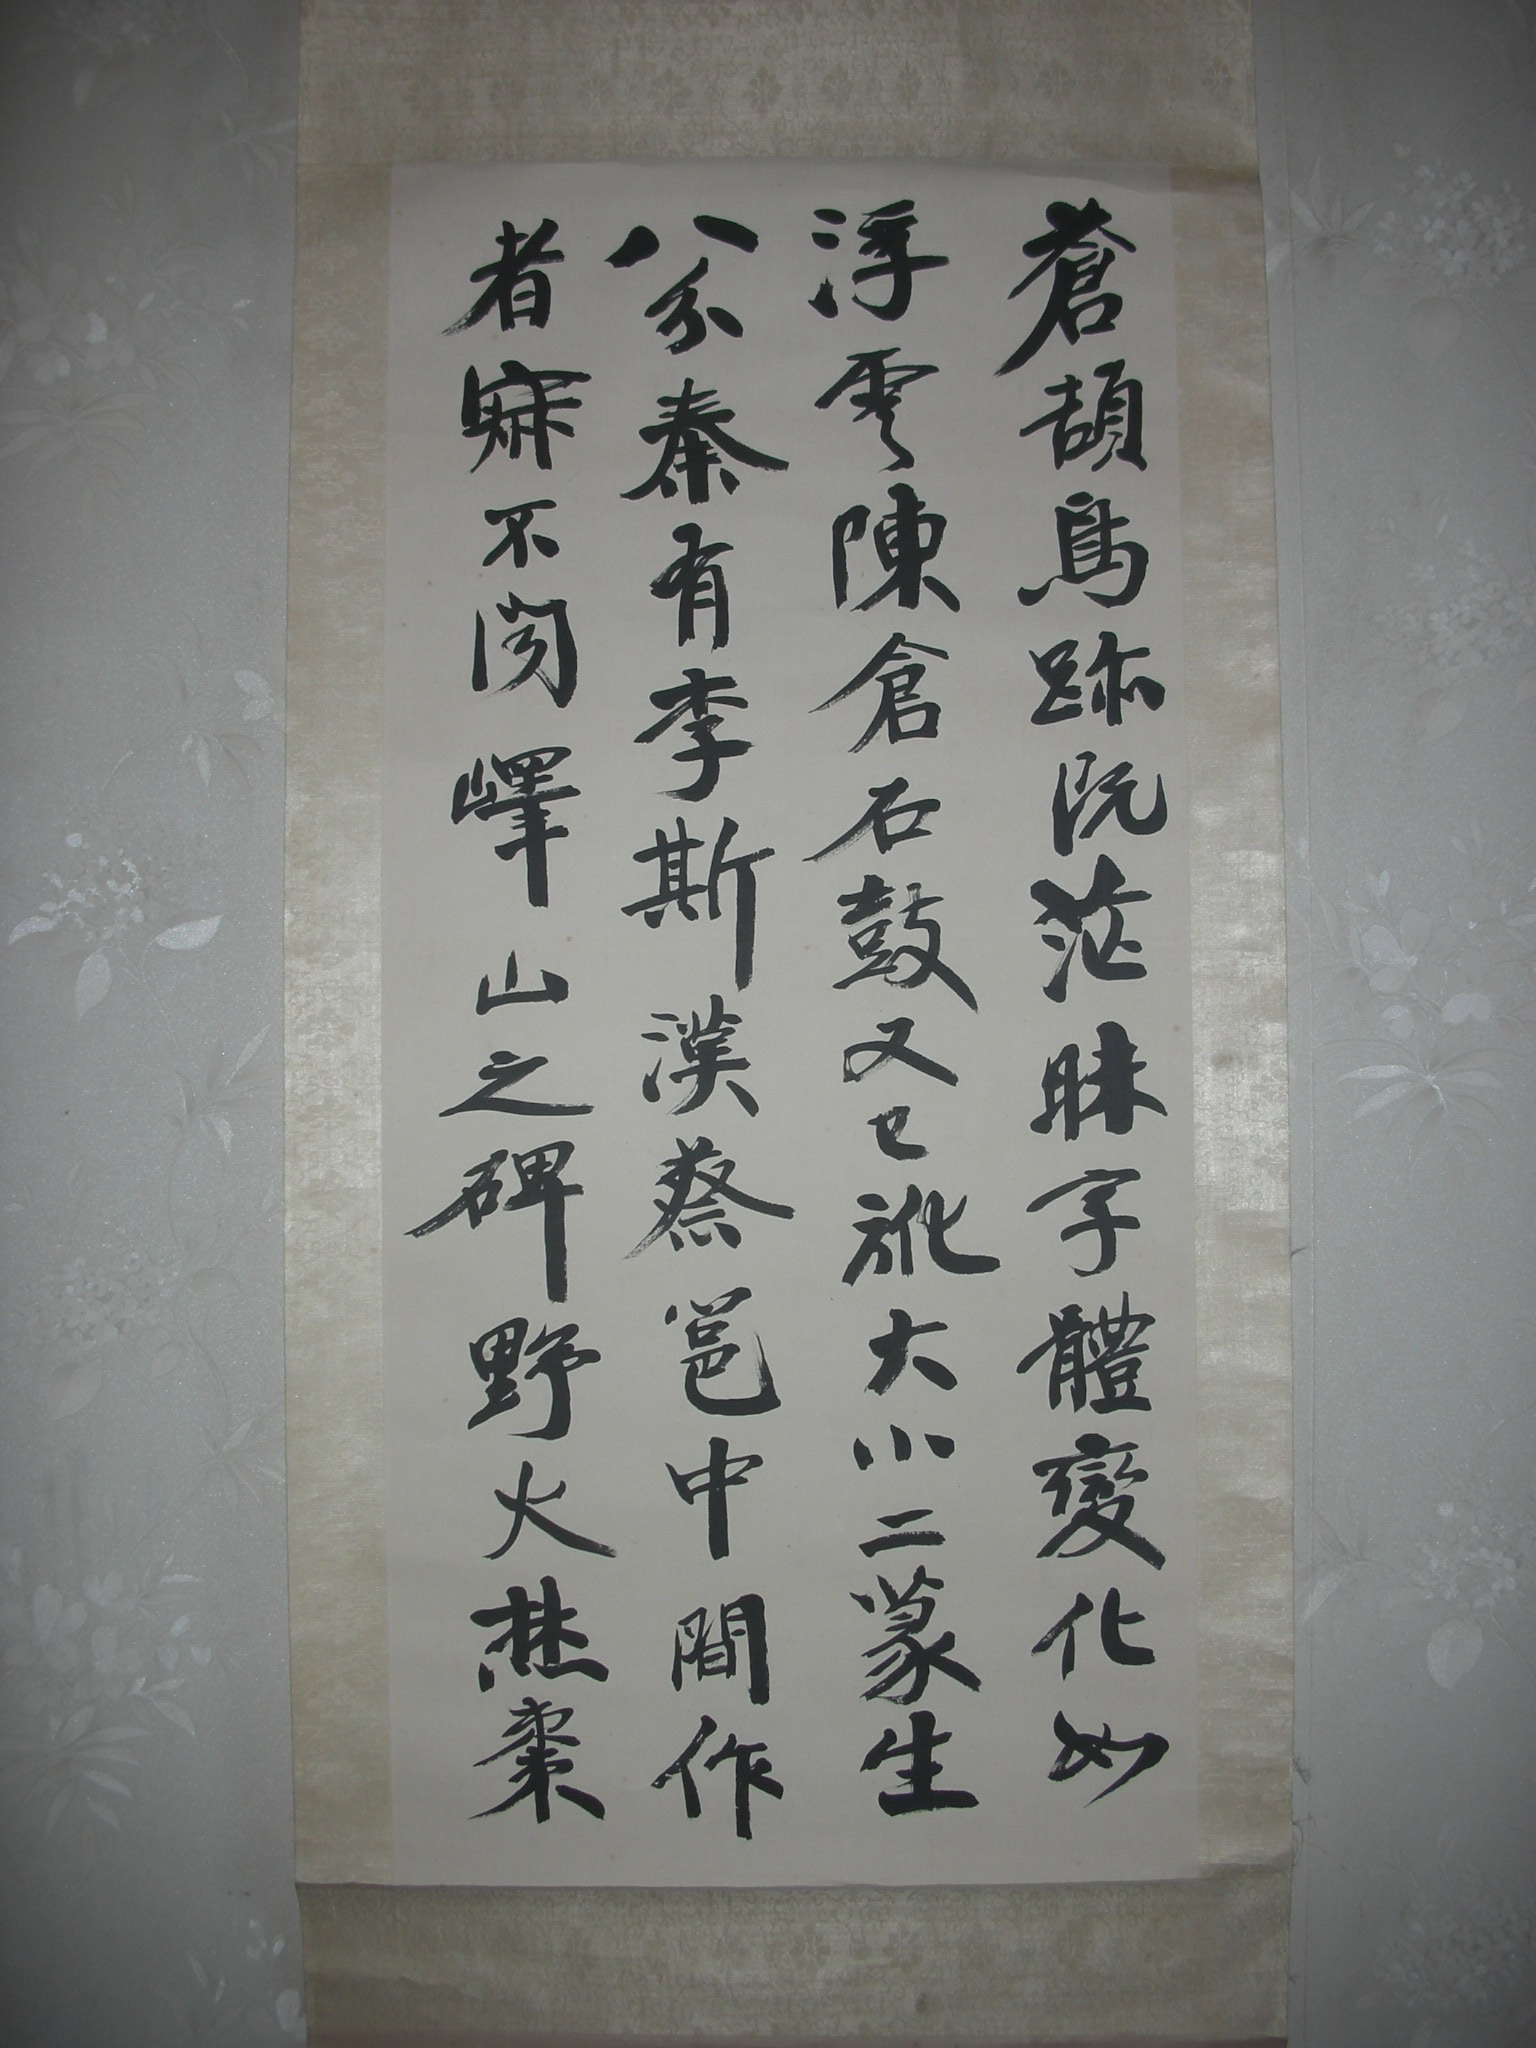 蒼頡鳥跡既茫昧字體變化如
浮雲陳倉石鼓又已訛大小二篆生
八分秦有李斯漢蔡邕中間作
者寂不聞嶧山之碑野火焚棗